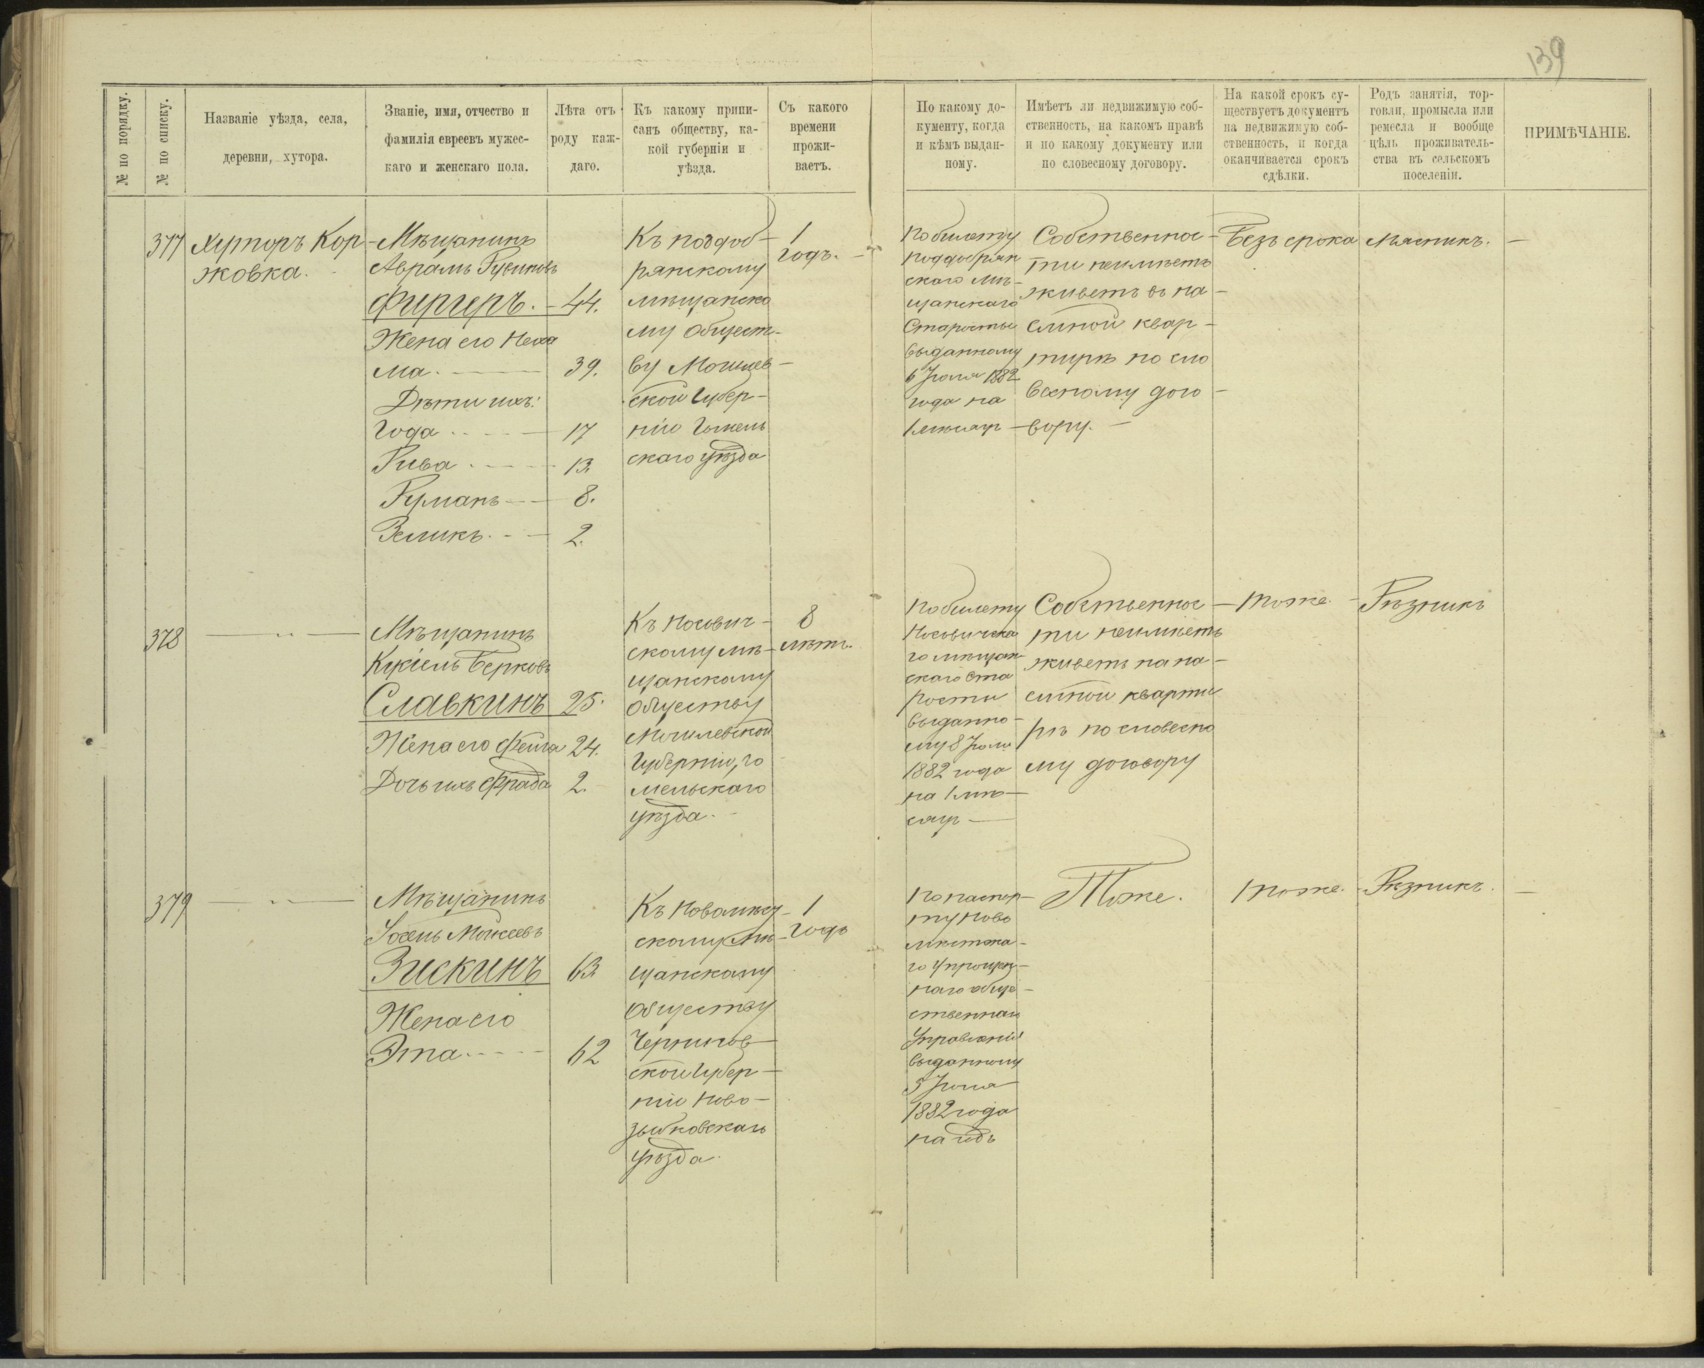 139
№ по порядку.
№ по списку.
Названіе уѣзда, села,
деревни, хутора.
Званіе, имя, отчество и
фамилія евреевъ мужес-
каго и женскаго пола.
Лѣта отъ
роду каж-
даго.
Къ какому припи-
санъ обществу, ка-
кой губерніи и
уѣзда.
Съ какого
времени
прожи-
ваетъ.
По какому до-
кументу, когда
и кѣмъ выдан-
ному.
Имѣетъ ли недвижимую соб-
ственность, на какомъ правѣ
и по какому документу или
по словесному договору.
На какой срокъ су-
ществуетъ документъ
на недвижимую соб-
ственность, и когда
оканчивается срокъ
сдѣлки.
Родъ занятія, тор-
говли, промысла или
ремесла и вообще
цѣль проживатель-
ства въ сельскомъ
поселеніи.
ПРИМѢЧАНІЕ.
377
хуторъ Кор-
жовка.
Мѣщанинъ
Аврамъ Рувиновъ
Фиргеръ. 44.
Жена его Неха
ма. 39.
Дѣти ихъ:
Года 17
Рива 13
Румакъ 8.
Зеликъ 2.
Къ поддоб-
рянскому
мѣщанско
му общест-
ву Могилев-
ской Губер-
ніи Гомель
скаго уѣзда
1
Годъ.
По билету
Поддобрян
скаго мѣ-
щанскаго
Старосты
выданному
6 Іюля 1882
года на
1 мѣсяцъ
Собственнос-
ти неимѣетъ
живетъ въ на-
емной квар-
тирѣ по сло
весному дого-
вору.
Безъ срока
Мясникъ.
378
Мѣщанинъ
Кусіель Берковъ
Славкинъ 25.
Жена его Фейга 24.
Дочь ихъ Фрада 2.
Къ Носович-
скому мѣ-
щанскому
обществу
Могилевской
Губерніи, Го
мельскаго
уѣзда.
8
лѣтъ.
По билету
Носовичска
го мѣщан
скаго Ста
рости
выданно-
му 8 Іюля
1882 года
на 1 мѣ-
сяцъ
Собственнос-
ти неимѣетъ
живетъ на на-
емной кварти
рѣ по словесно
му договору
тоже
Рѣзникъ
379
Мѣщанинъ
Іосель Моисеевъ
Зискинъ 63
Жена его
Эта 62
Къ Новомѣст-
скому мѣ-
щанскому
обществу
Чернигов-
ской Губер-
ніи Ново-
зыбковскаго
уѣзда.
1
Годъ
По паспор-
ту Ново
мѣстска-
го Упрощен-
наго обще-
ственнаго
Управленія
выданному
5 Іюля
1882 года
на годъ
Тоже.
тоже.
Рѣзникъ.